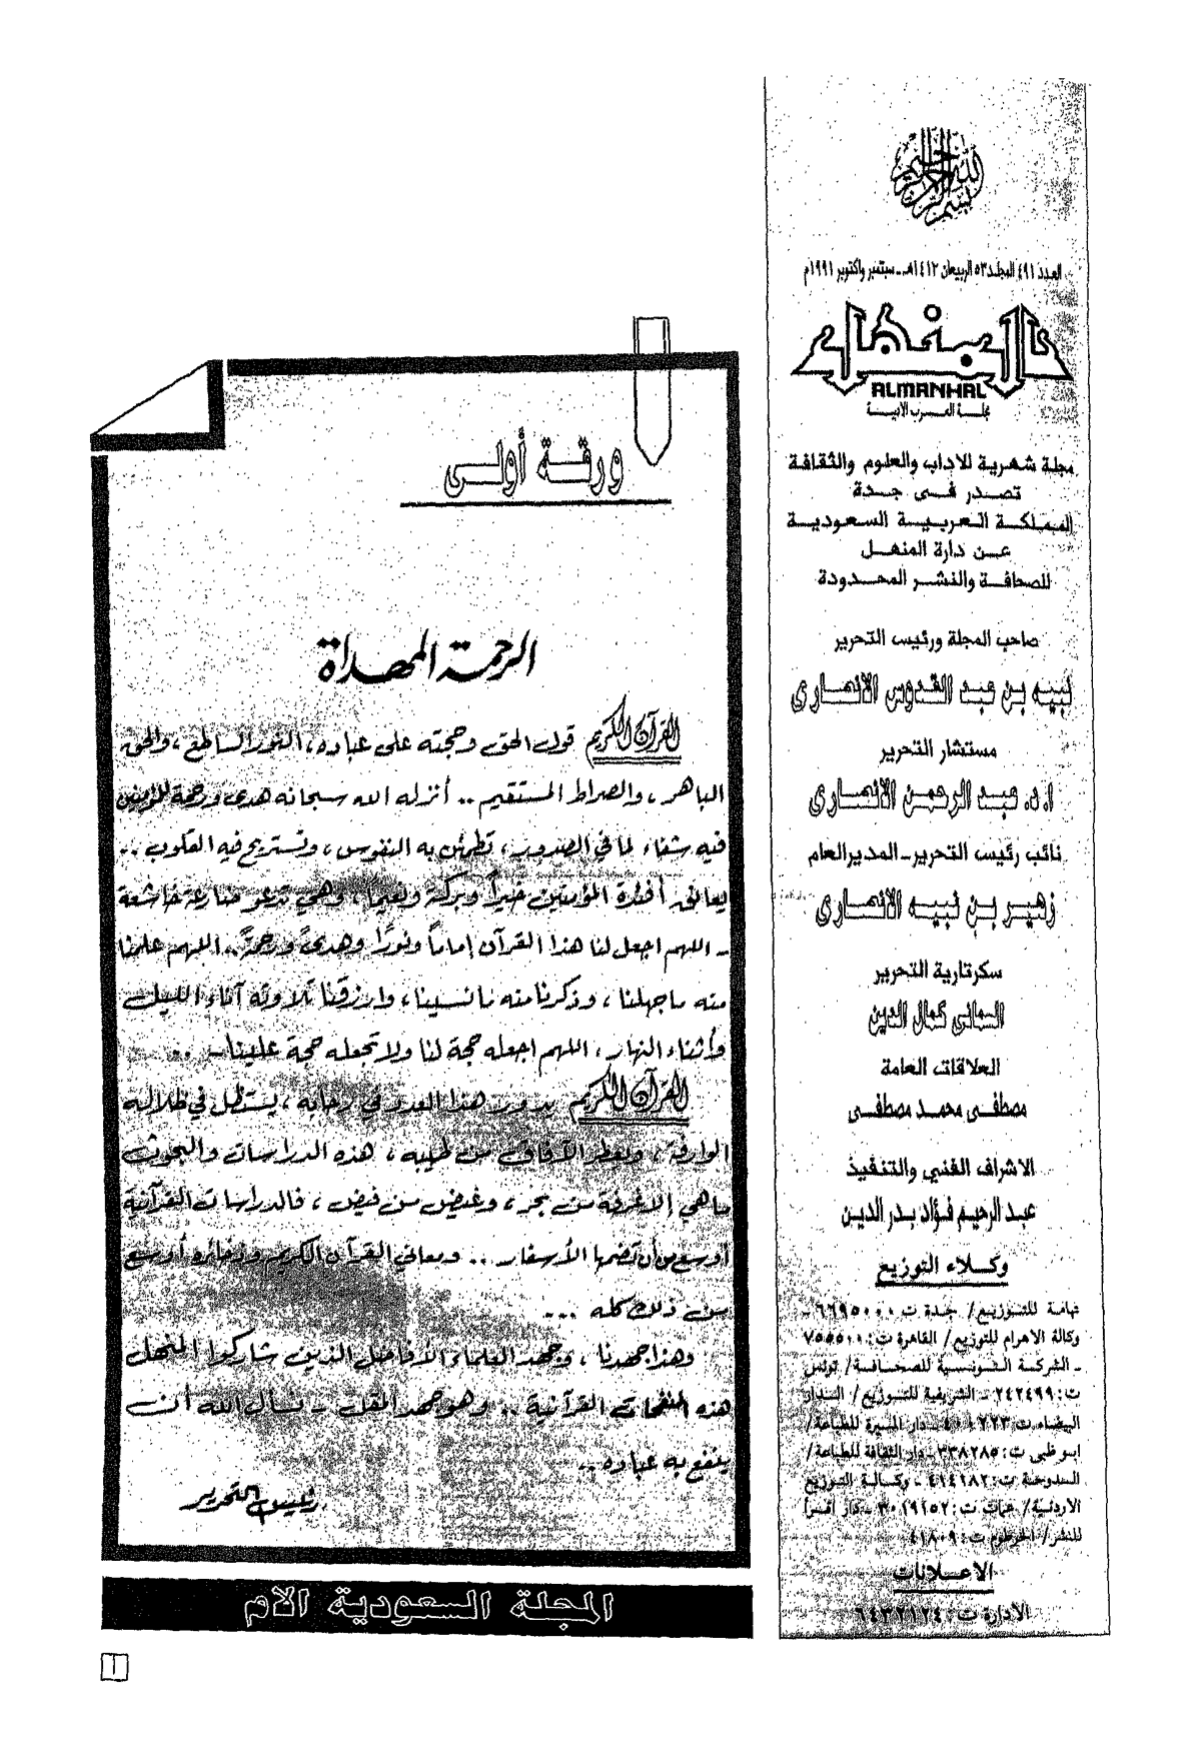 بسم الله الرحمن الرحيم
العدد ٤٩١ المجلد ٥٣ الربيعان ١٤١٢هـ ـ سبتمبر واكتوبر ١٩٩١م
المنهل
ALMANHAL
مجلة العرب الأدبية
مجلة شهرية للآداب والعلوم والثقافة
تصدر في جدة
المملكة العربية السعودية
عن دارة المنهل
للصحافة والنشر المحدودة
صاحب المجلة ورئيس التحرير
نبيه بن عبد القدوس الأنصاري
مستشار التحرير
ا.د. عبد الرحمن الأنصاري
نائب رئيس التحرير ـ المدير العام
زهير بن نبيه الأنصاري
سكرتارية التحرير
السماني كمال الدين
العلاقات العامة
مصطفى محمد مصطفى
الاشراف الفني والتنفيذ
عبد الرحيم فؤاد بدر الدين
وكلاء التوزيع
تهامة للتوزيع/ جدة ت ٦٦٩٥٠٠٠ ـ
وكالة الاهرام للتوزيع/ القاهرة ت: ٧٥٥٥٠٠
ـ الشركة التونسية للصحافة/ تونس
ت: ٢٤٢٤٩٩ ـ الشريفية للتوزيع/ الدار
البيضاء ت: ٤٠٠٢٢٣ ـ دار المسيرة للطباعة/
ابو ظبى ت: ٣٣٨٢٨٥ ـ دار الثقافة للطباعة/
الدوحة ت: ٤١٤١٨٢ ـ وكالة التوزيع
الاردنية/ عمان ت: ٣٠١٩١٥٢ ـ دار أقرأ
للنشر/ الخرطوم ت: ٤١٨٠٩
الاعلانات
الادارة ت: ٦٤٣٢١٢٤
ورقة أولى
الرحمة المهداة
القرآن الكريم قول الحق وحجته على عباده، النور الساطع، والحق
الباهر، والصراط المستقيم .. أنزله الله سبحانه هدى ورحمة للمؤمنين
فيه شفاء لما في الصدور، تطمئن به النفوس، وتستريح فيه القلوب ..
يعانق أفئدة المؤمنين خيراً وبركة ونعيماً، وهي تدعو ضارعة خاشعة
ـ اللهم اجعل لنا هذا القرآن إماماً ونوراً وهدىً ورحمةً .. اللهم علمنا
منه ما جهلنا، وذكرنا منه ما نسينا، وارزقنا تلاوته آناء الليل
وأثناء النهار، اللهم اجعله حجة لنا ولا تجعله حجة علينا ..
القرآن الكريم يدور هذا العدد في رحابه، يستظل في ظلاله
الوارفة، ويعطر الآفاق من طيبه، هذه الدراسات والبحوث
ما هي إلا غرفة من بحر، وغيض من فيض، فالدراسات القرآنية
أوسع من أن تضمها الأسفار .. ومعاني القرآن الكريم وذخائره أوسع
من ذلك كله ...
وهذا جهدنا، وجهد العلماء الأفاضل الذين شاركوا المنهل
هذه النفحات القرآنية .. وهو جهد المقل ـ نسأل الله أن
ينفع به عباده ..
رئيس التحرير
المجلة السعودية الأم
١